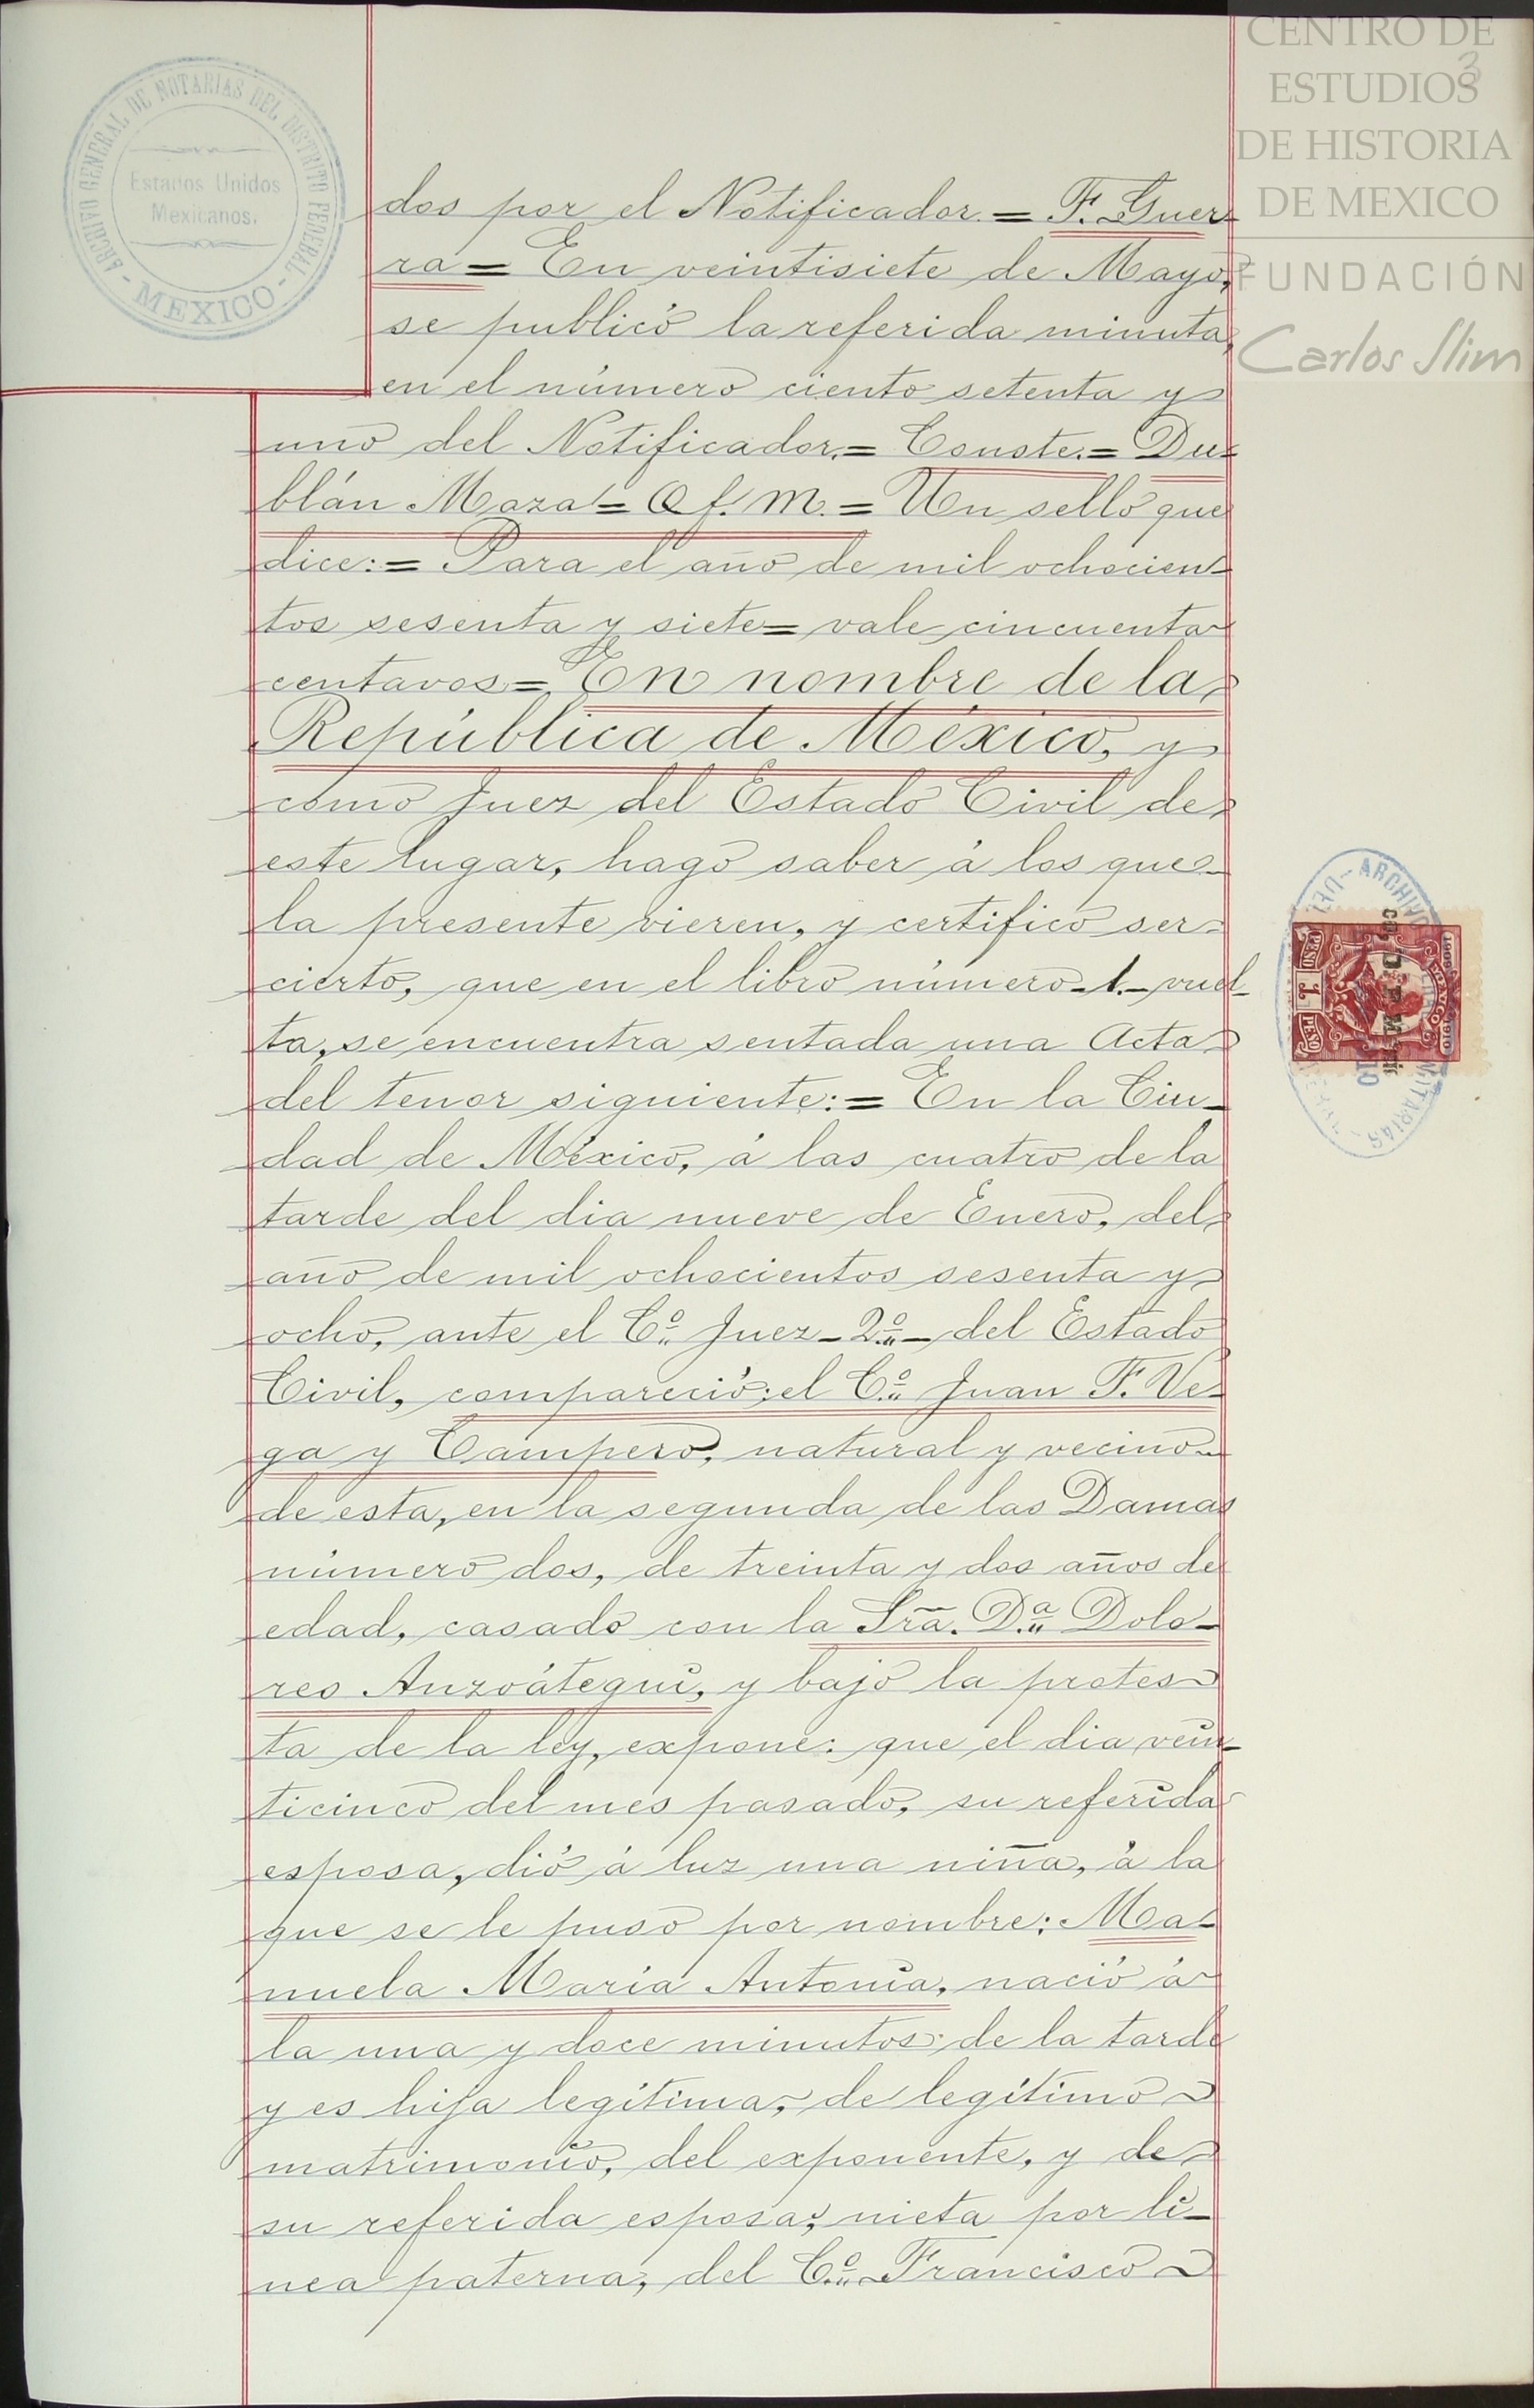 CENTRO DE
ESTUDIOS
DE HISTORIA
DE MEXICO
FUNDACIÓN
Carlos Slim
3
ARCHIVO GENERAL DE NOTARIAS DEL DISTRITO FEDERAL
- MEXICO -
Estados Unidos
Mexicanos.
dos por el Notificador.= F. Guer-
ra= En veintisiete de Mayo,
se publicó la referida minuta,
en el número ciento setenta y
uno del Notificador.= Conste.= Du-
blán Maza= Of. M.= Un sello que
dice:= Para el año de mil ochocien-
tos sesenta y siete= vale cincuenta
centavos= En nombre de la
República de México, y
como Juez del Estado Civil de
este lugar, hago saber á los que
la presente vieren, y certifico ser
cierto, que en el libro número-1.-vuel-
ta, se encuentra sentada una Acta
del tenor siguiente:= En la Ciu-
dad de México, á las cuatro de la
tarde del dia nueve de Enero, del
año de mil ochocientos sesenta y
ocho, ante el C.º Juez-2.º-del Estado
Civil, compareció; el C.º Juan F. Ve-
ga y Campero, natural y vecino
de esta, en la segunda de las Damas
número dos, de treinta y dos años de
edad, casado con la Sra. D.ª Dolo-
res Anzoátegui, y bajo la protes-
ta de la ley, expone: que el dia vein-
ticinco del mes pasado, su referida
esposa, dió á luz una niña, á la
que se le puso por nombre: Ma-
nuela María Antonia, nació á
la una y doce minutos de la tarde
y es hija legítima, de legítimo
matrimonio, del exponente, y de
su referida esposa; nieta por lí-
nea paterna, del C.º Francisco
ARCHIVO
PESO 1 PESO
MEXICO